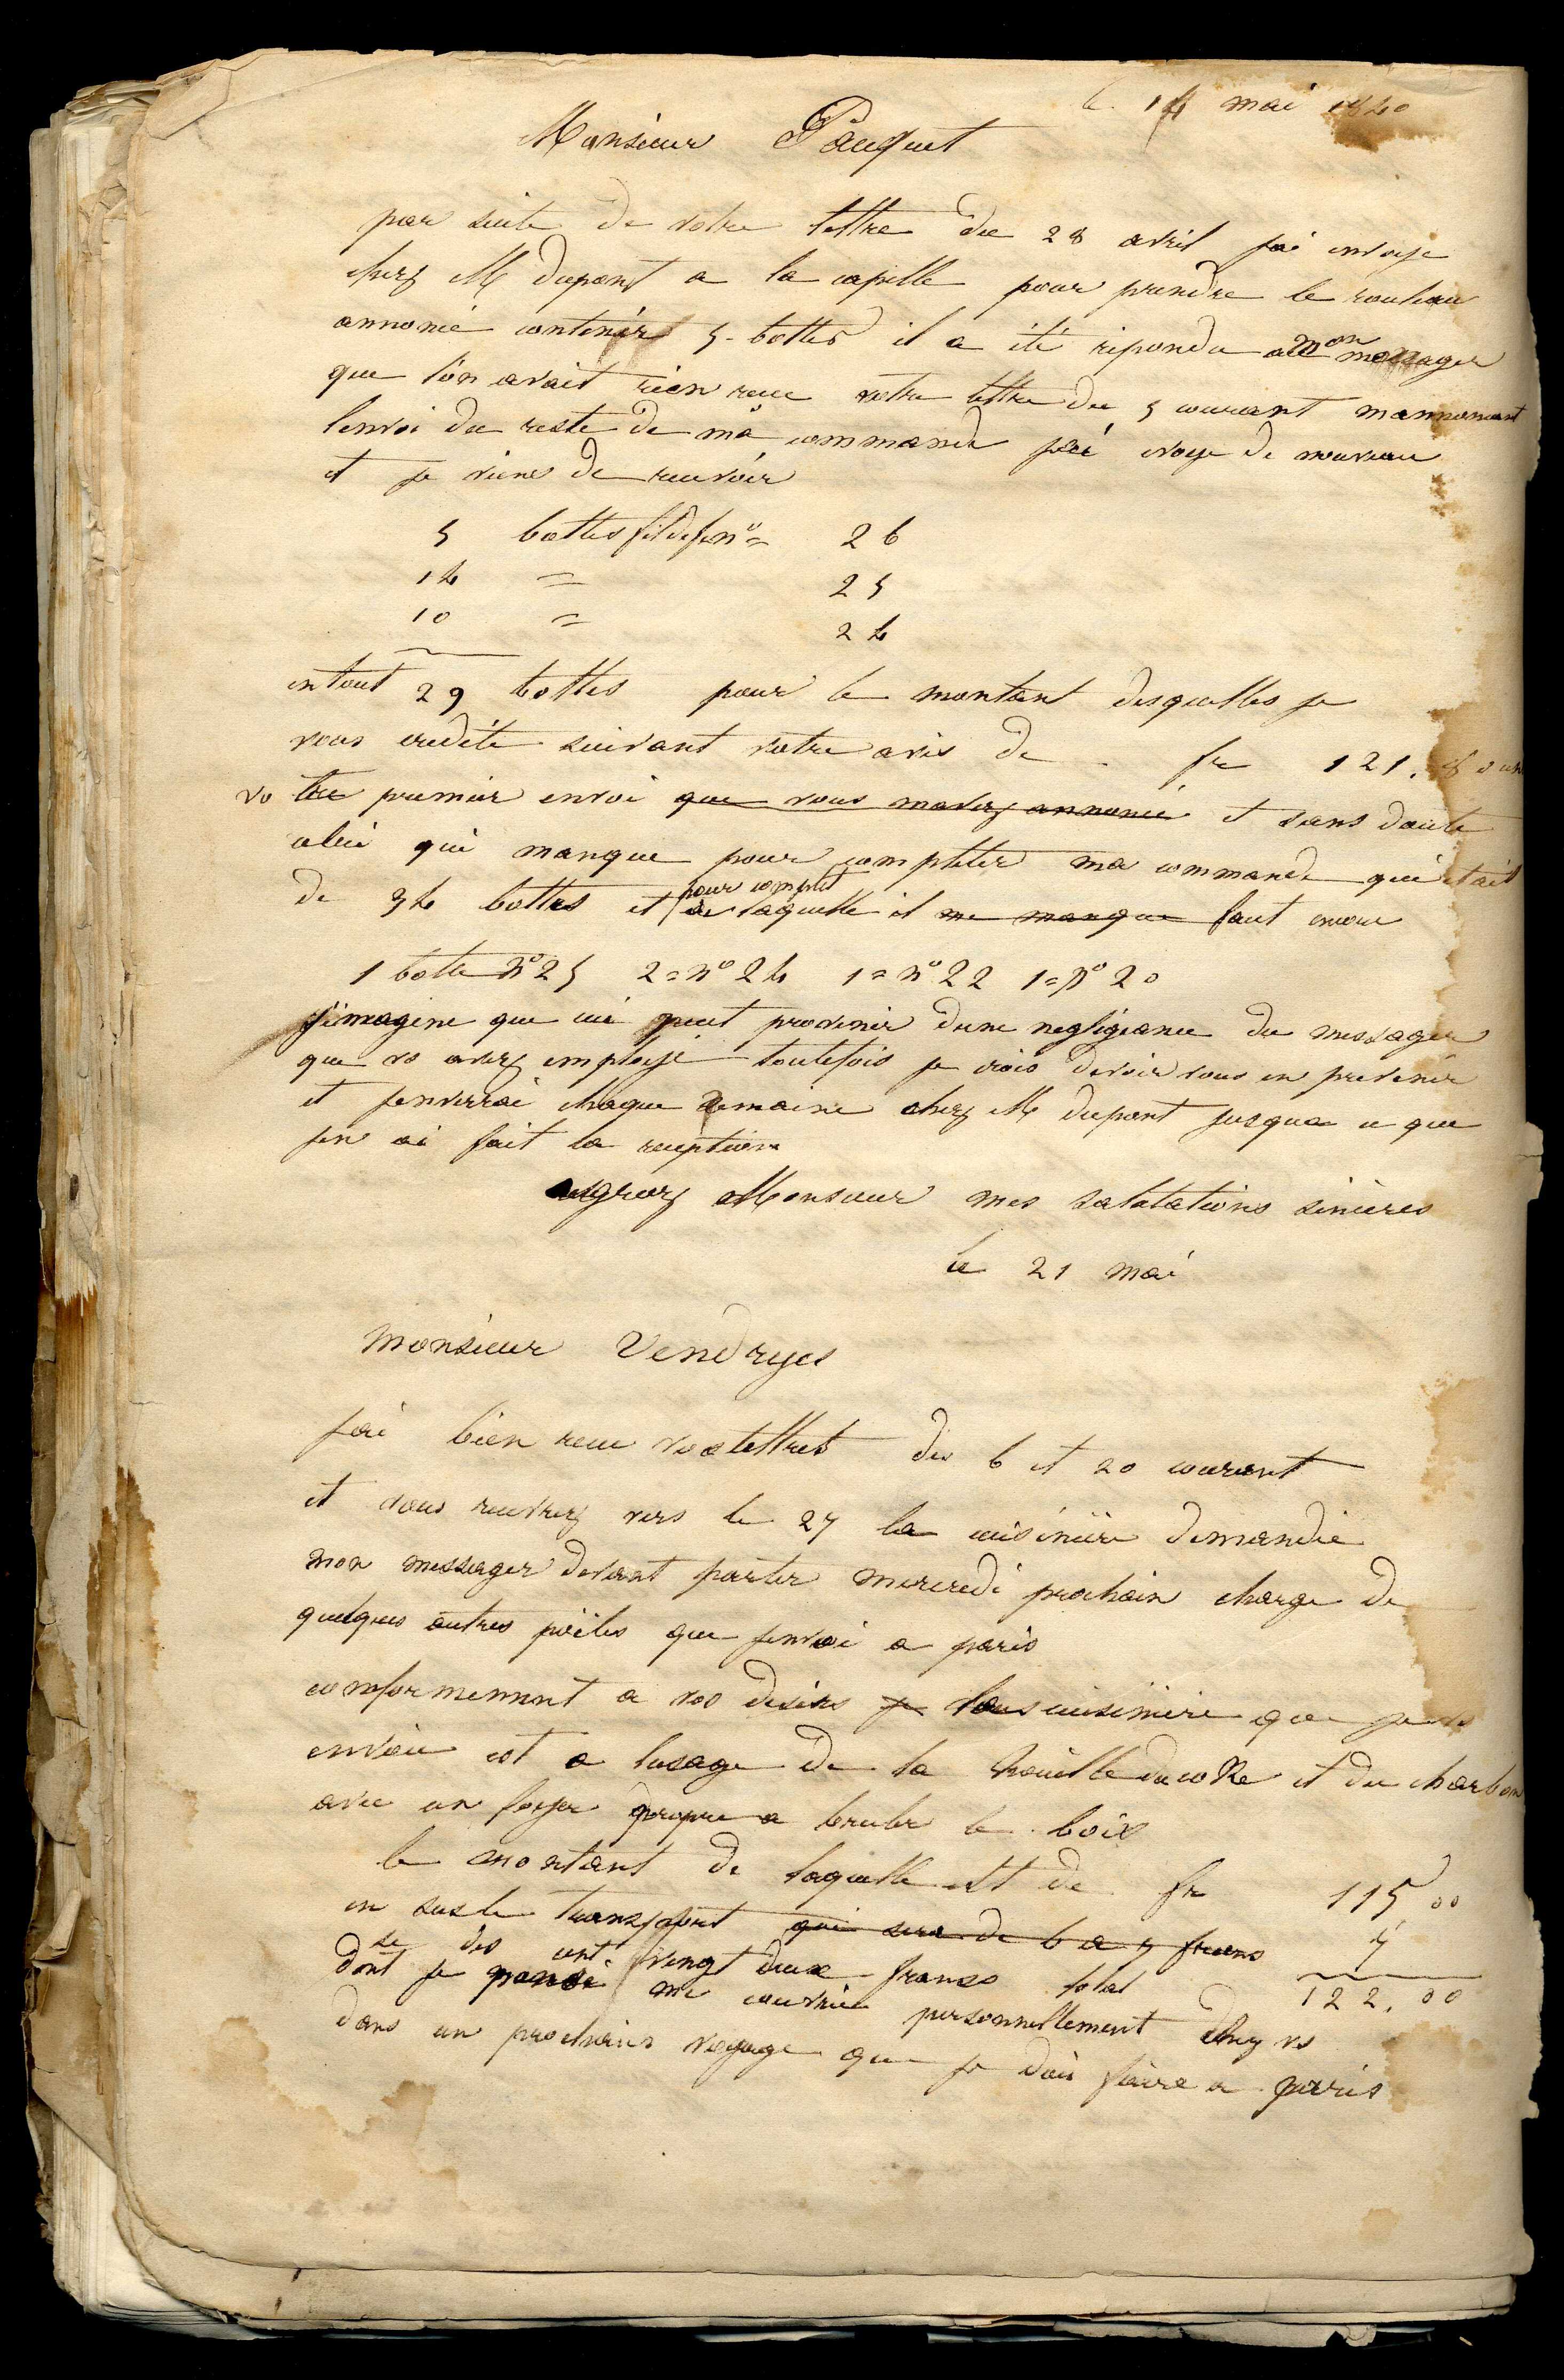 le 14 mai 1840
Monsieur Pauquet
par suite de votre lettre du 28 avril jai envoye
cherz M dupont a la capelle pour prendre le rouleau
annoncé contenir 5 bottes il a été répondu a mon messager
que l'on avait rien recu votre lettre du 5 courant mannoncant
lenvoi du reste de ma commande jai evoye de nouveau
et je viens de recevoir
5 bottes fil de fer n° = 26
14 = 25
10 = 24
en tout 29 bottes pour le montant desquelles je
vous crédite suivant votre avis de - fr 121.
votre premier envoi que vous mavez annoncé et sans doute
celui qui manque pour completer ma commande qui etait
de 34 bottes et pour complet de laquelle il me manque faut encore
1 botte n° 25 2 = n° 24 1 = n° 22 1 = n° 20
j'imagine que ceci peut provenir dune negligeance du messager
que vs avez employé toutefois je crois devoir vous en prevenir
et jenverrai chaque semaine cherz M dupont jusqua ce que
jen ai fait la reception
agreez Monsieur mes salutations sincères
le 21 mai
Monsieur Vendryes
jai bien recu vos lettres des 6 et 20 courant
et vous recevrez vers le 27 la cuisinière demandée
mon messager devant partir mercredi prochain charge de
quelques autres poëles que jenvoi a paris
conformement a vos desirs je vous cuisiniere que je vs
envoie est a lusage de la houille du coke et du charbon
avec un foyer propre a bruler le bois
le montant de laquelle est de fr 115,00
en sus le transport qui sera de 6 a 7 francs 7
se dés cent vingt deux francs total 122.00
dont je me couvrir personnellement chez vs
dans un prochain voyage que je dois faire a paris